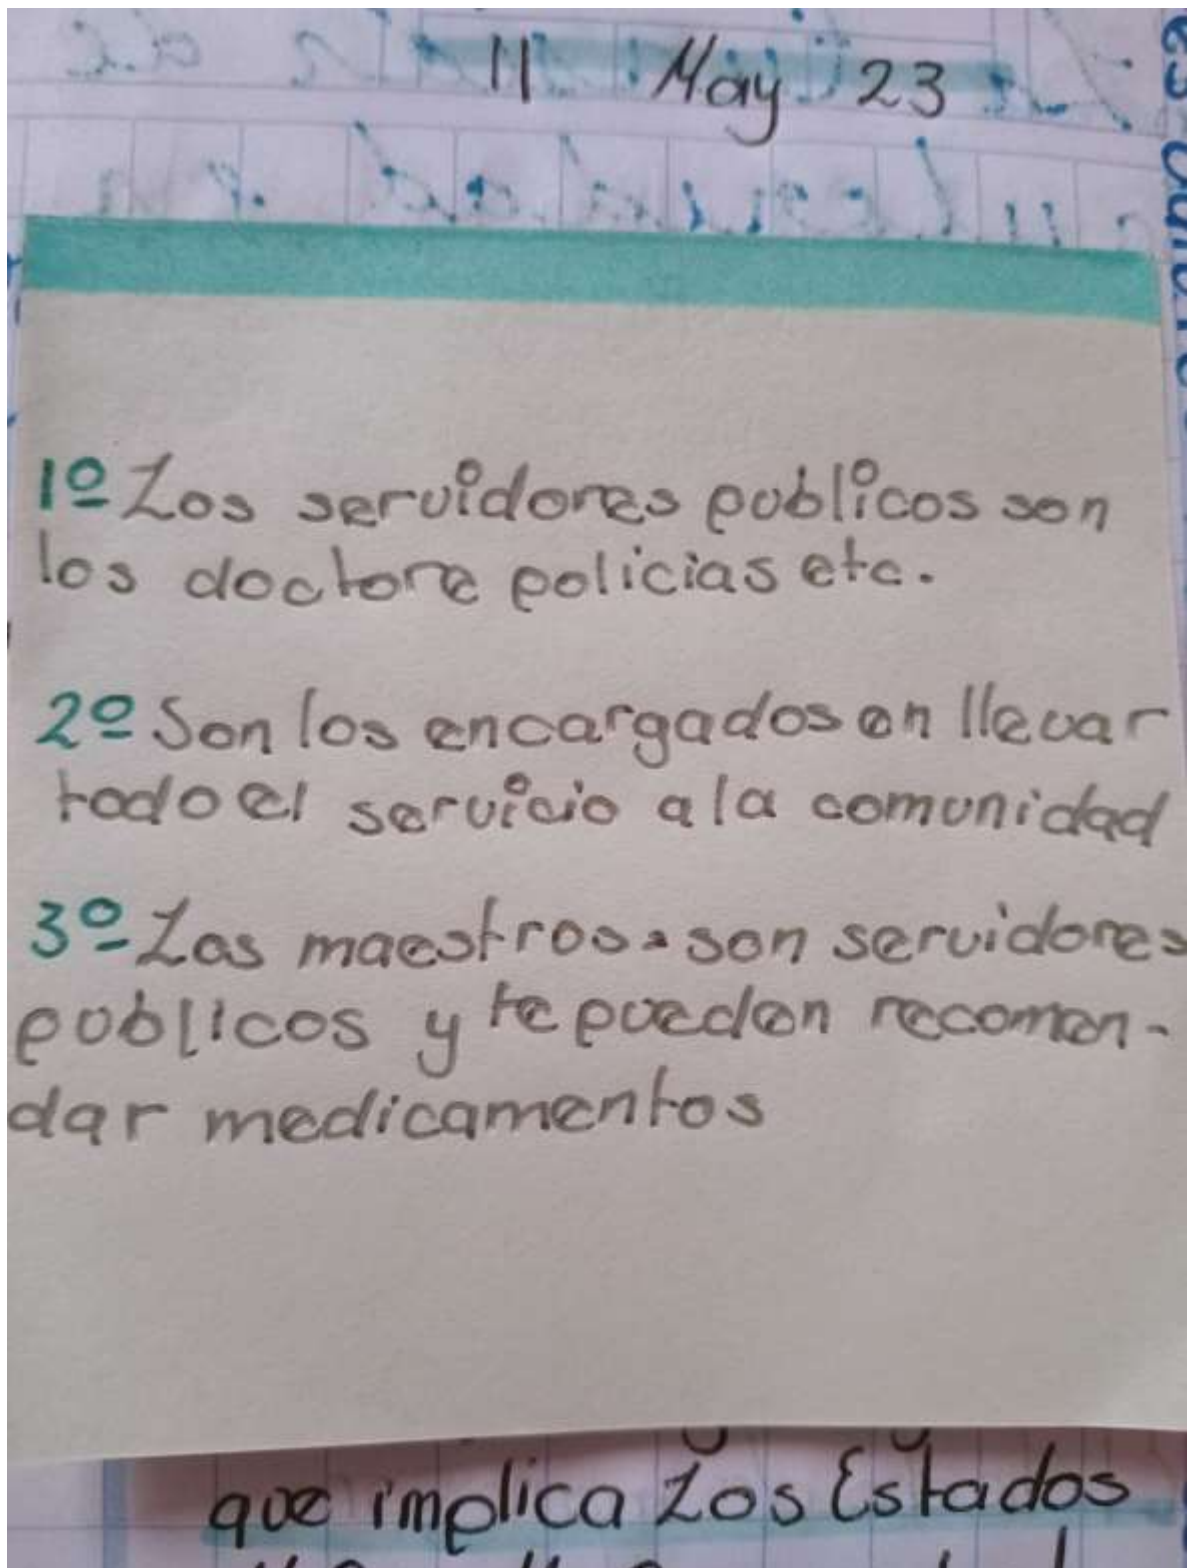 11 May 23
1º Los servidores publicos son
los doctore policias etc.
2º Son los encargados en llevar
todo el servicio a la comunidad
3º Los maestros son servidores
publicos y te pueden recomen-
dar medicamentos
que implica Los Estados